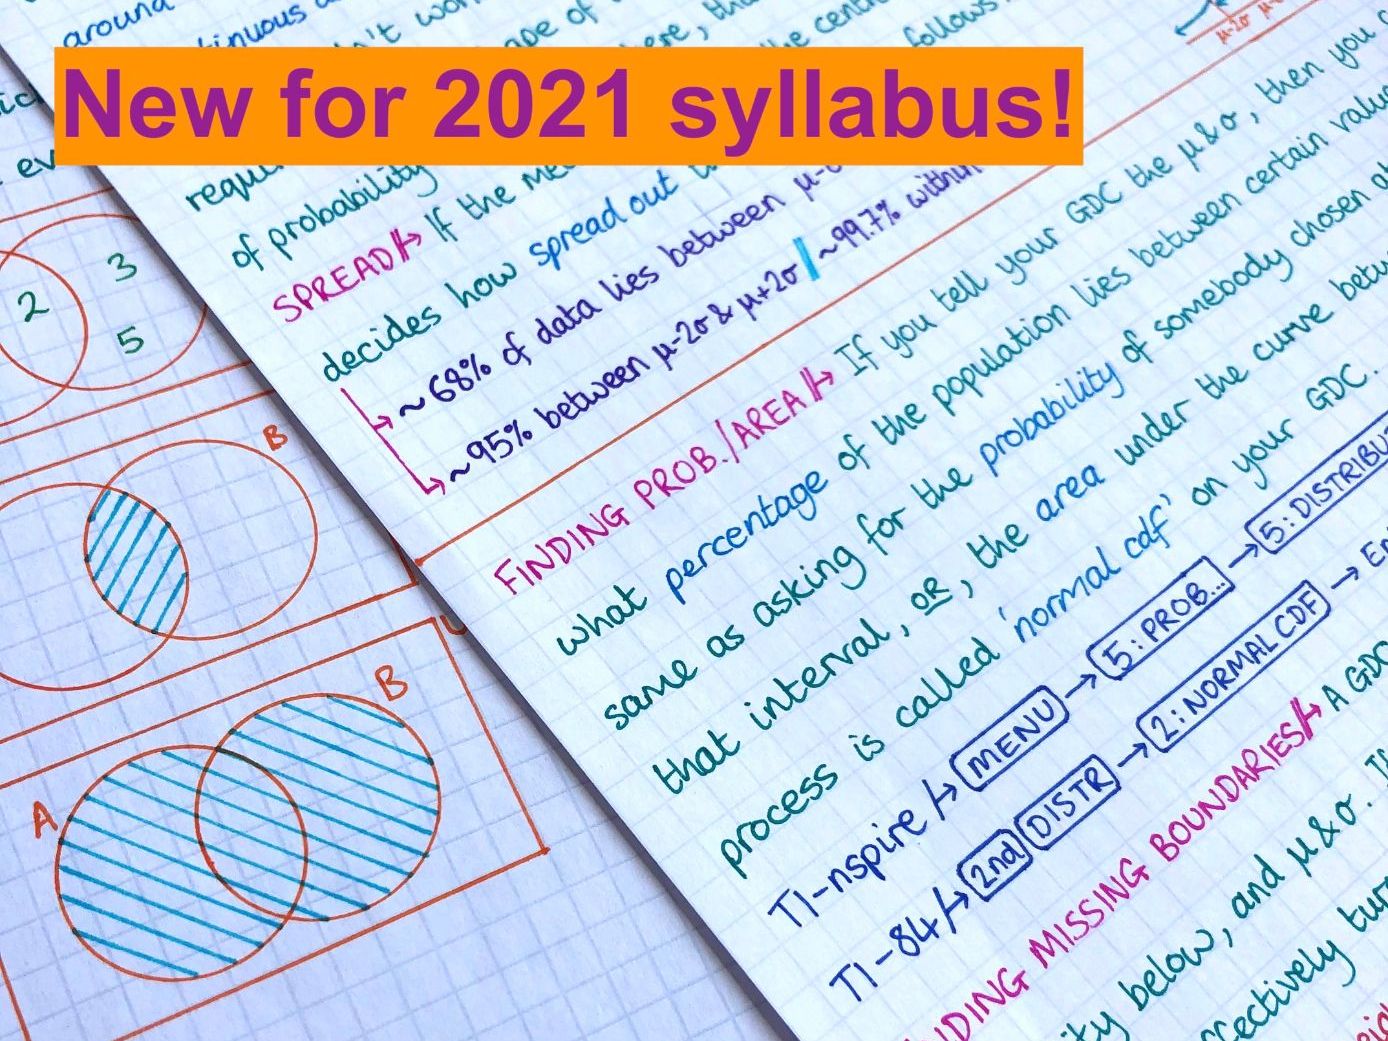 New for 2021 syllabus!
around
't
of
here,
the
follows
of probability
SPREAD If the
decides how spread out
~68% of data lies between
~95% between μ-2σ & μ+2σ ~99.7% within
FINDING PROB./AREA If you tell your GDC the μ & σ, then you
what percentage of the population lies between certain
same as asking for the probability of somebody chosen
that interval, OR, the area under the curve
process is called 'normal cdf' on your GDC.
TI-nspire MENU → 5: PROB... → 5: DISTRIBU
TI-84 2nd DISTR → 2: NORMAL CDF →
MISSING BOUNDARIES A GDC
below, and μ & σ.
2
3
5
B
A
B